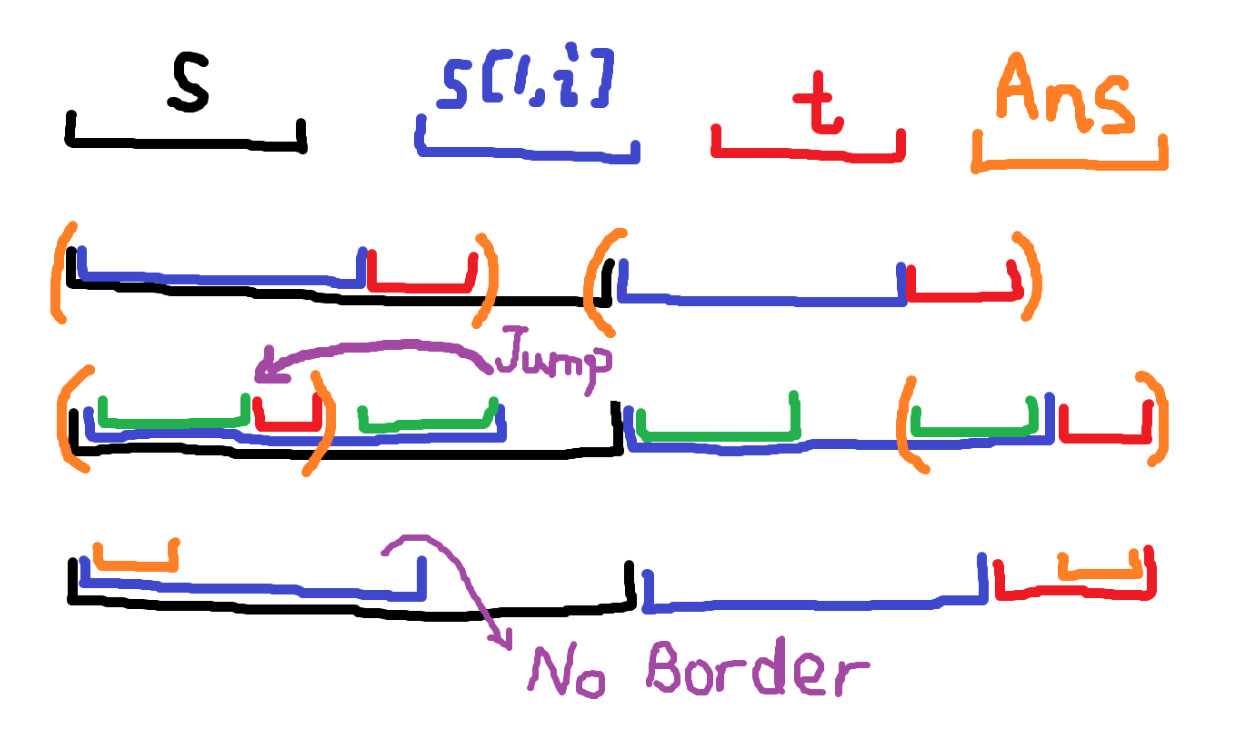 S s[1,i] t Ans
Jump
No Border